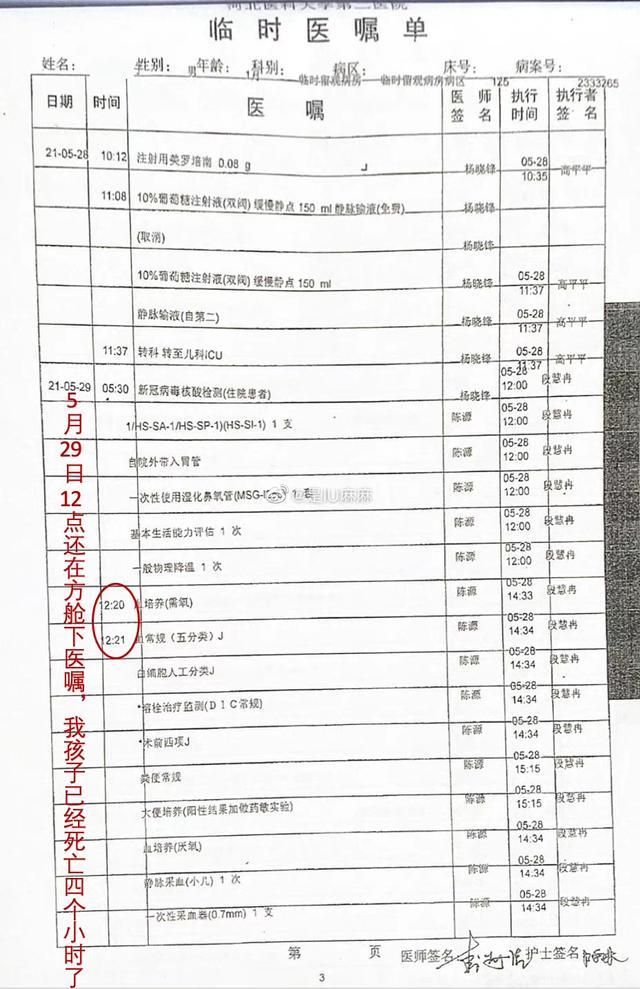 河北医科大学第二医院
临时医嘱单
姓名： 性别： 男 年龄： 1月 科别： 临时留观病房 病区： 临时留观病房病区 床号： 125 病案号： 2333265
日期 时间 医嘱 医师签名 执行时间 执行者签名
21-05-28 10:12 注射用美罗培南 0.08 g 杨晓锋 05-28 10:35 高平平
11:08 10%葡萄糖注射液(双阀) 缓慢静点 150 ml 静脉输液(免费) 杨晓锋
(取消) 杨晓锋
10%葡萄糖注射液(双阀) 缓慢静点 150 ml 杨晓锋 05-28 11:37 高平平
静脉输液(自第二) 杨晓锋 05-28 11:37 高平平
11:37 转科 转至儿科ICU 杨晓锋 05-28 11:37 高平平
21-05-29 05:30 新冠病毒核酸检测(住院患者) 杨晓锋 05-28 12:00 段慧冉
1/HS-SA-1/HS-SP-1)(HS-SI-1) 1 支 陈源 05-28 12:00 段慧冉
自院外带入胃管 陈源 05-28 12:00 段慧冉
一次性使用湿化鼻氧管(MSG-I 1 套 陈源 05-28 12:00 段慧冉
基本生活能力评估 1 次 陈源 05-28 12:00 段慧冉
一般物理降温 1 次 陈源 05-28 12:00 段慧冉
12:20 血培养(需氧) 陈源 05-28 14:33 段慧冉
12:21 血常规（五分类）J 陈源 05-28 14:34 段慧冉
白细胞人工分类J 陈源 05-28 14:34 段慧冉
*溶栓治疗监测(DIC常规) 陈源 05-28 14:34 段慧冉
*术前四项J 陈源 05-28 14:34 段慧冉
粪便常规 陈源 05-28 15:15 段慧冉
大便培养(阳性结果加做药敏实验) 陈源 05-28 15:15 段慧冉
血培养(厌氧) 陈源 05-28 14:34 段慧冉
静脉采血(小儿) 1 次 陈源 05-28 14:34 段慧冉
一次性采血器(0.7mm) 1 支 陈源 05-28 14:34 段慧冉
第 页 医师签名 护士签名
3
5月29目12点还在方舱下医嘱，我孩子已经死亡四个小时了
@是IU麻麻